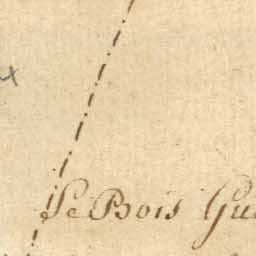 Le Bois Gu